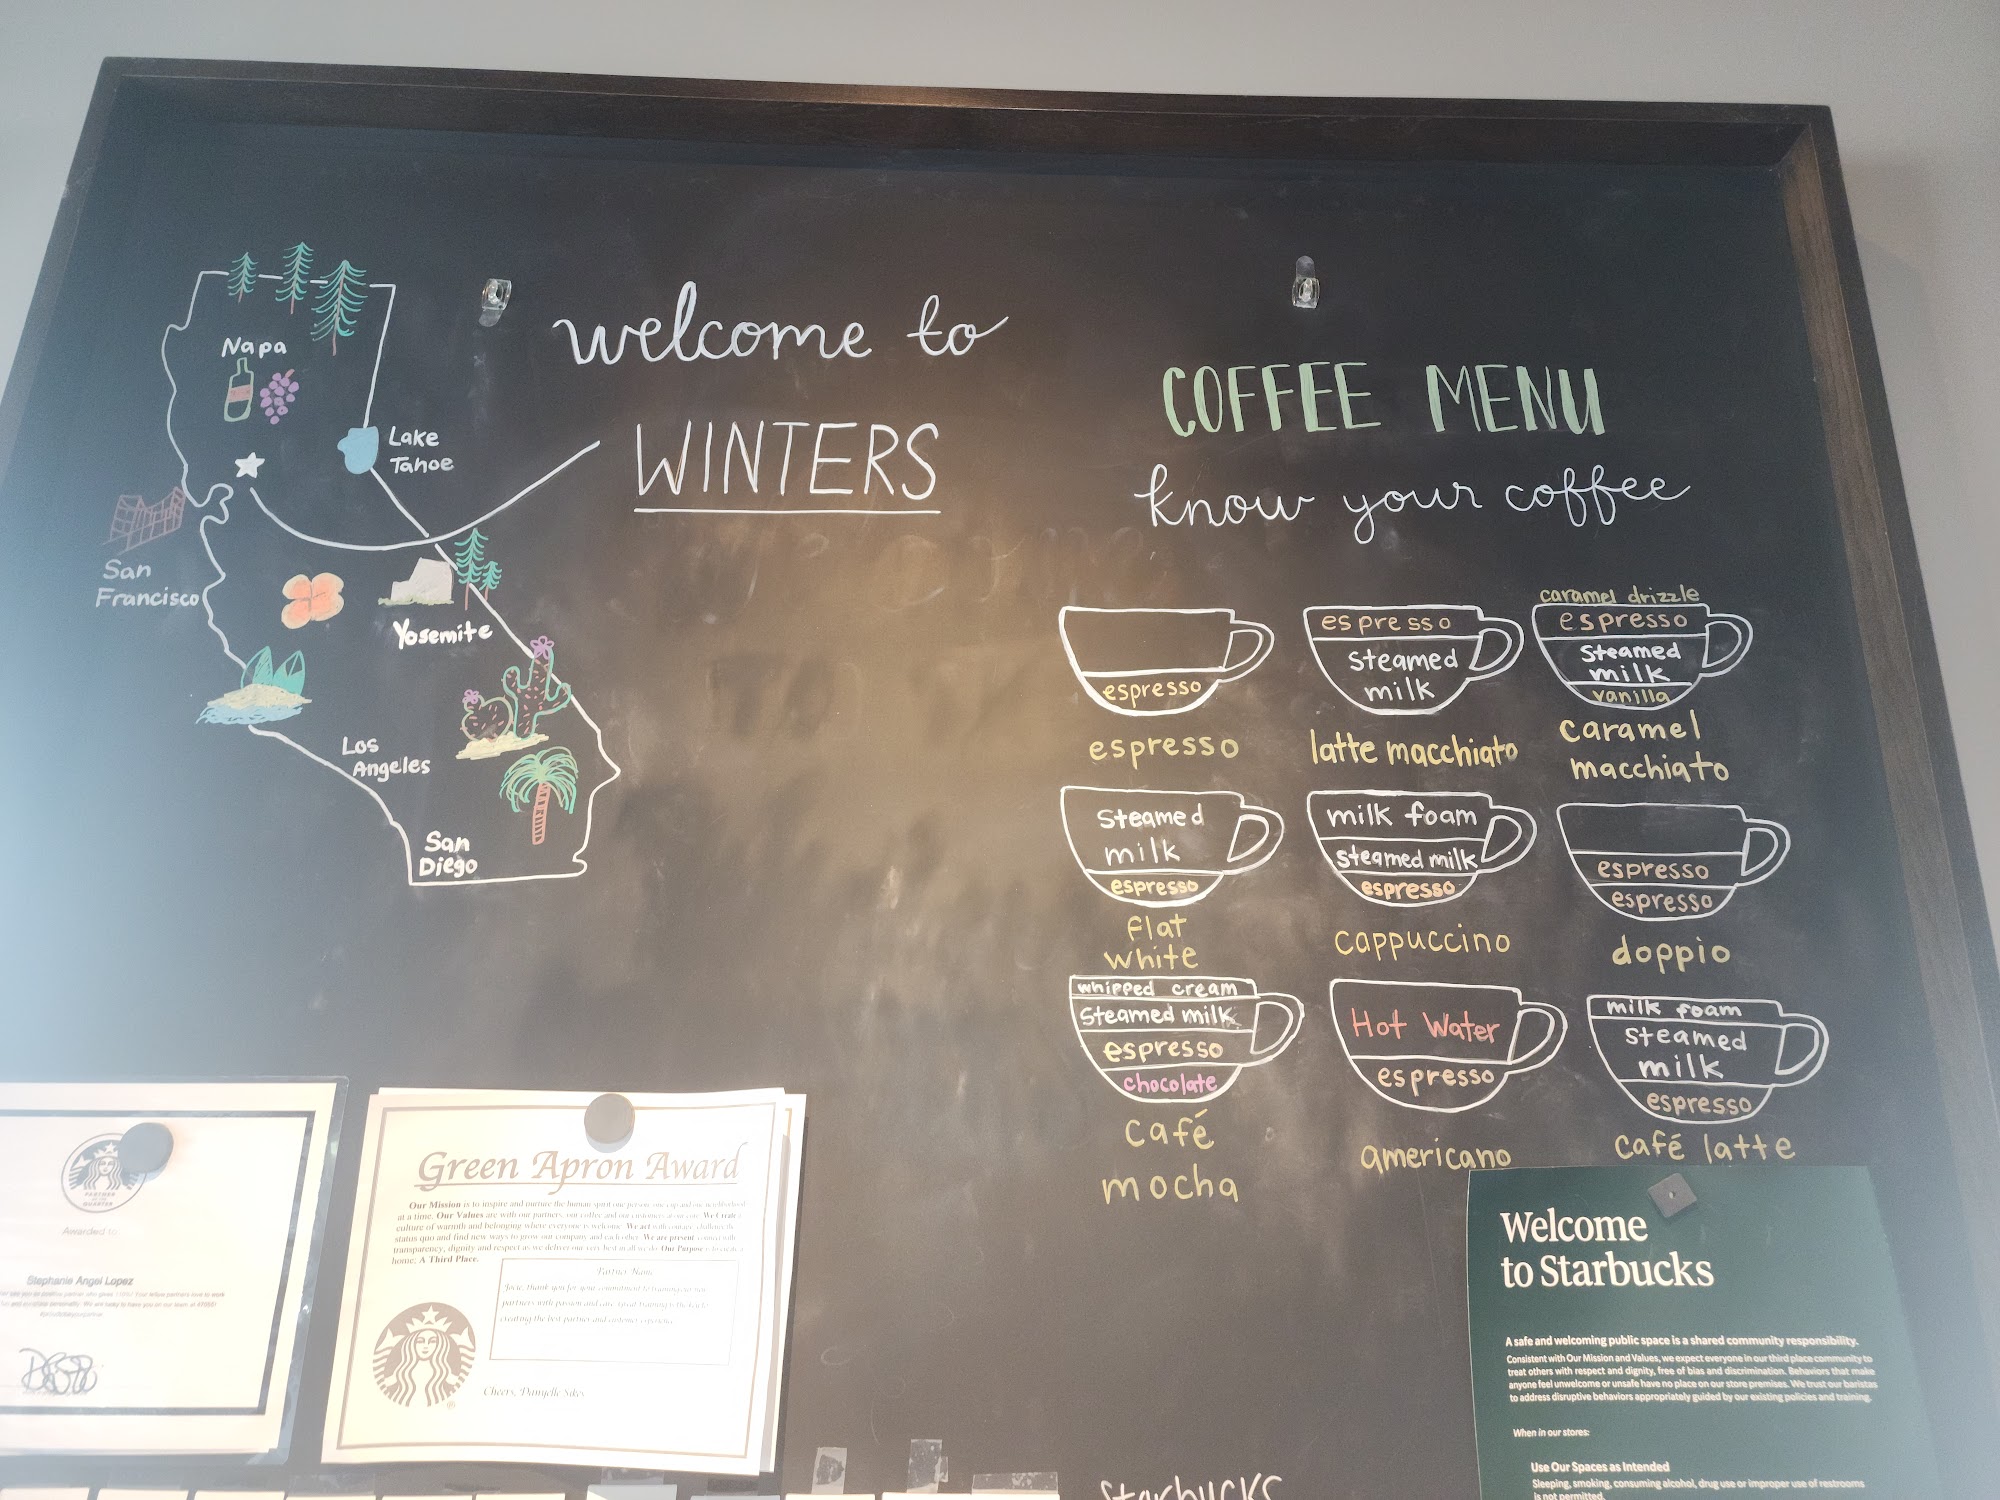 welcome to
WINTERS
Napa
Lake
Tahoe
San
Francisco
Yosemite
Los
Angeles
San
Diego
COFFEE MENU
know your coffee
espresso
espresso
espresso
steamed
milk
latte macchiato
caramel drizzle
espresso
steamed
milk
vanilla
caramel
macchiato
steamed
milk
espresso
flat
white
milk foam
steamed milk
espresso
cappuccino
espresso
espresso
doppio
whipped cream
steamed milk
espresso
chocolate
café
mocha
Hot Water
espresso
americano
milk foam
steamed
milk
espresso
café latte
PARTNER
OF THE
QUARTER
Awarded to:
Stephanie Angel Lopez
Green Apron Award
Our Mission is to inspire and nurture the human spirit one person, one cup and one neighborhood
at a time. Our Values are with our partners, our coffee and our customers at our core. We Create a
culture of warmth and belonging where everyone is welcome. We act with courage, challenge the
status quo and find new ways to grow our company and each other. We are present, connect with
transparency, dignity and respect as we deliver our very best in all we do. Our Purpose is to create a
home; A Third Place.
Partner Name
thank you for your commitment to training our new
partners with passion and care. Great training is the key to
creating the best partner and customer experience.
Cheers, Danyelle Sikes
®
Welcome
to Starbucks
A safe and welcoming public space is a shared community responsibility.
Consistent with Our Mission and Values, we expect everyone in our third place community to
treat others with respect and dignity, free of bias and discrimination. Behaviors that make
anyone feel unwelcome or unsafe have no place on our store premises. We trust our baristas
to address disruptive behaviors appropriately guided by our existing policies and training.
When in our stores:
Use Our Spaces as Intended
Sleeping, smoking, consuming alcohol, drug use or improper use of restrooms
is not permitted.
Starbucks